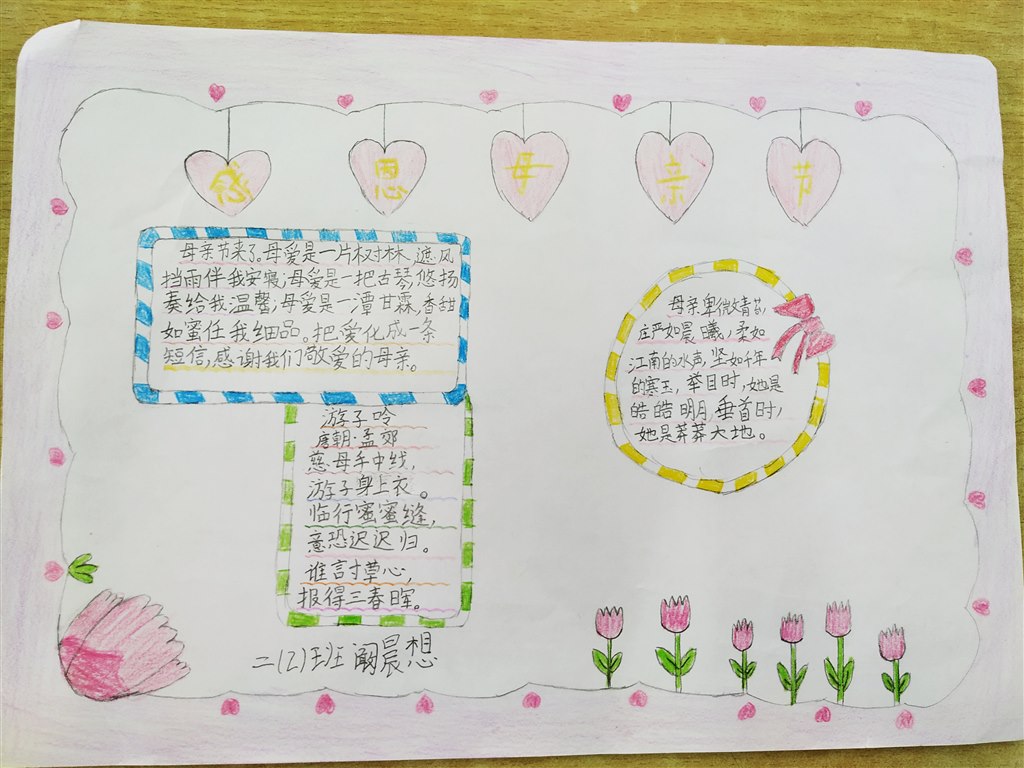 感恩母亲节
母亲节来了。母爱是一片树林、遮风
挡雨伴我安寝;母爱是一把古琴,悠扬
奏给我温馨;母爱是一潭甘霖,香甜
如蜜任我细品。把爱化成一条
短信,感谢我们敬爱的母亲。
母亲卑微如青苔,
庄严如晨曦,柔如
江南的水声,坚如千年
的寒玉,举目时,她是
皓皓明月,垂首时,
她是莽莽大地。
游子吟
唐朝·孟郊
慈母手中线,
游子身上衣。
临行蜜蜜缝,
意恐迟迟归。
谁言寸草心,
报得三春晖。
二(2)班 阚晨想